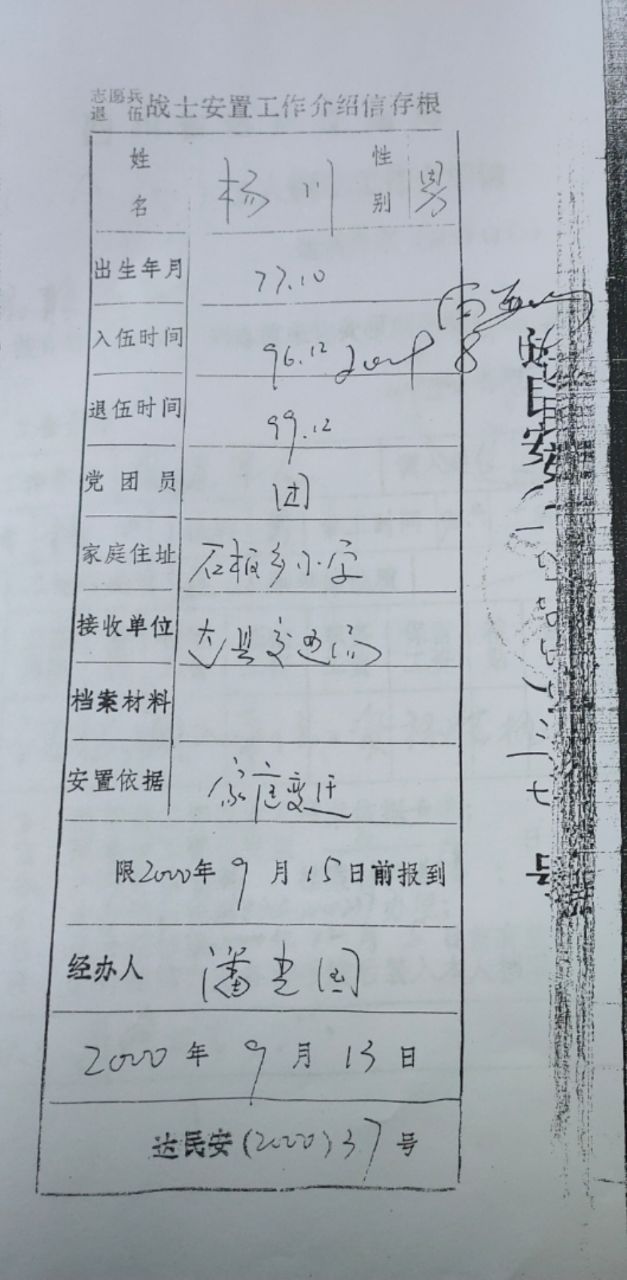 志愿兵
退伍 战士安置工作介绍信存根
姓名 杨川 性别 男
出生年月 77.10
入伍时间 96.12
退伍时间 99.12
党团员 团
家庭住址 石板乡小学
接收单位 达县交通局
档案材料
安置依据 家庭变迁
限2000年9月15日前报到
经办人 潘老国
2000年9月13日
达民安(2000)37号